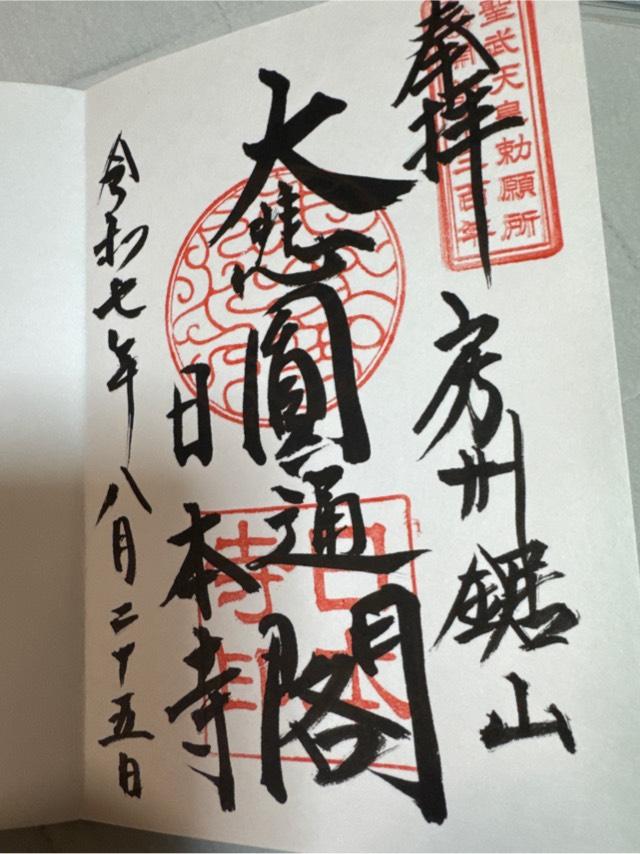 聖武天皇勅願所
三百年
奉拝 房州鋸山
大悲圓通閣
日本寺
日本
寺印
令和七年八月二十五日